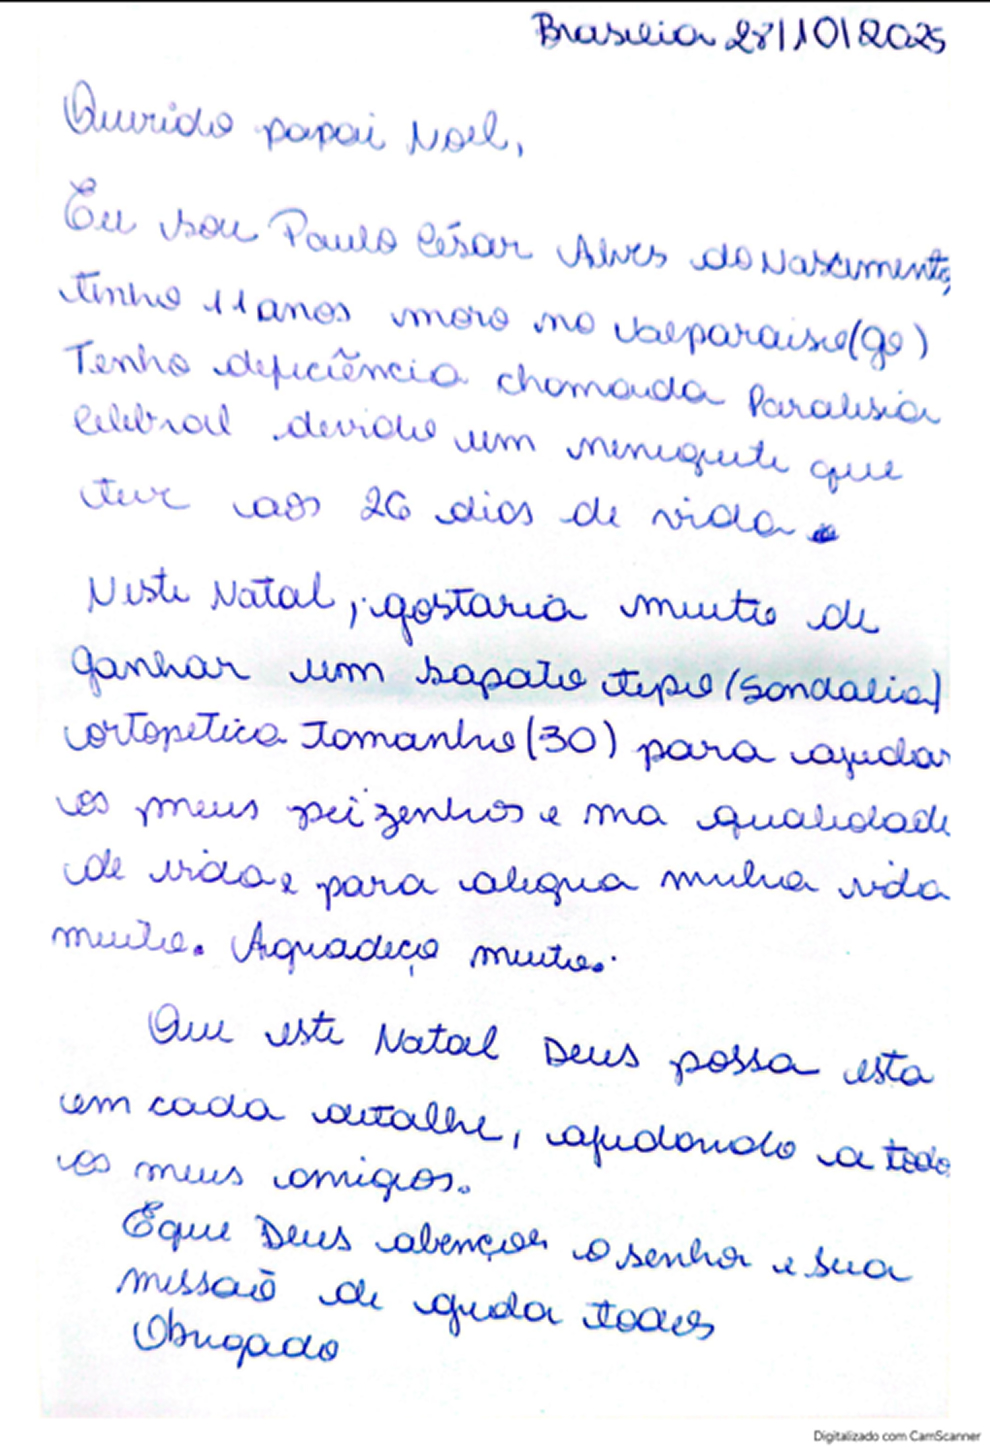 Brasilia 28/10/2025
Querido papai Noel,
Eu sou Paulo César Alves do Nascimento,
tinho 11 anos moro no Valparaiso(go)
Tenho deficiência chamada Paralisia
Celebral devido um meniquite que
tive aos 26 dias de vida.
Neste Natal, gostaria muito de
ganhar um sapato tipo (sondalia)
ortopetica Tamanho (30) para ajudar
os meus peizenhos e ma qualidade
de vida e para alegua minha vida
muito. Agradeço muito.
Que este Natal Deus possa esta
em cada detalhe, ajudando a todo
os meus amigos.
E que Deus abençoe o senhor e sua
missão de ajuda todos
Obrigado
Digitalizado com CamScanner